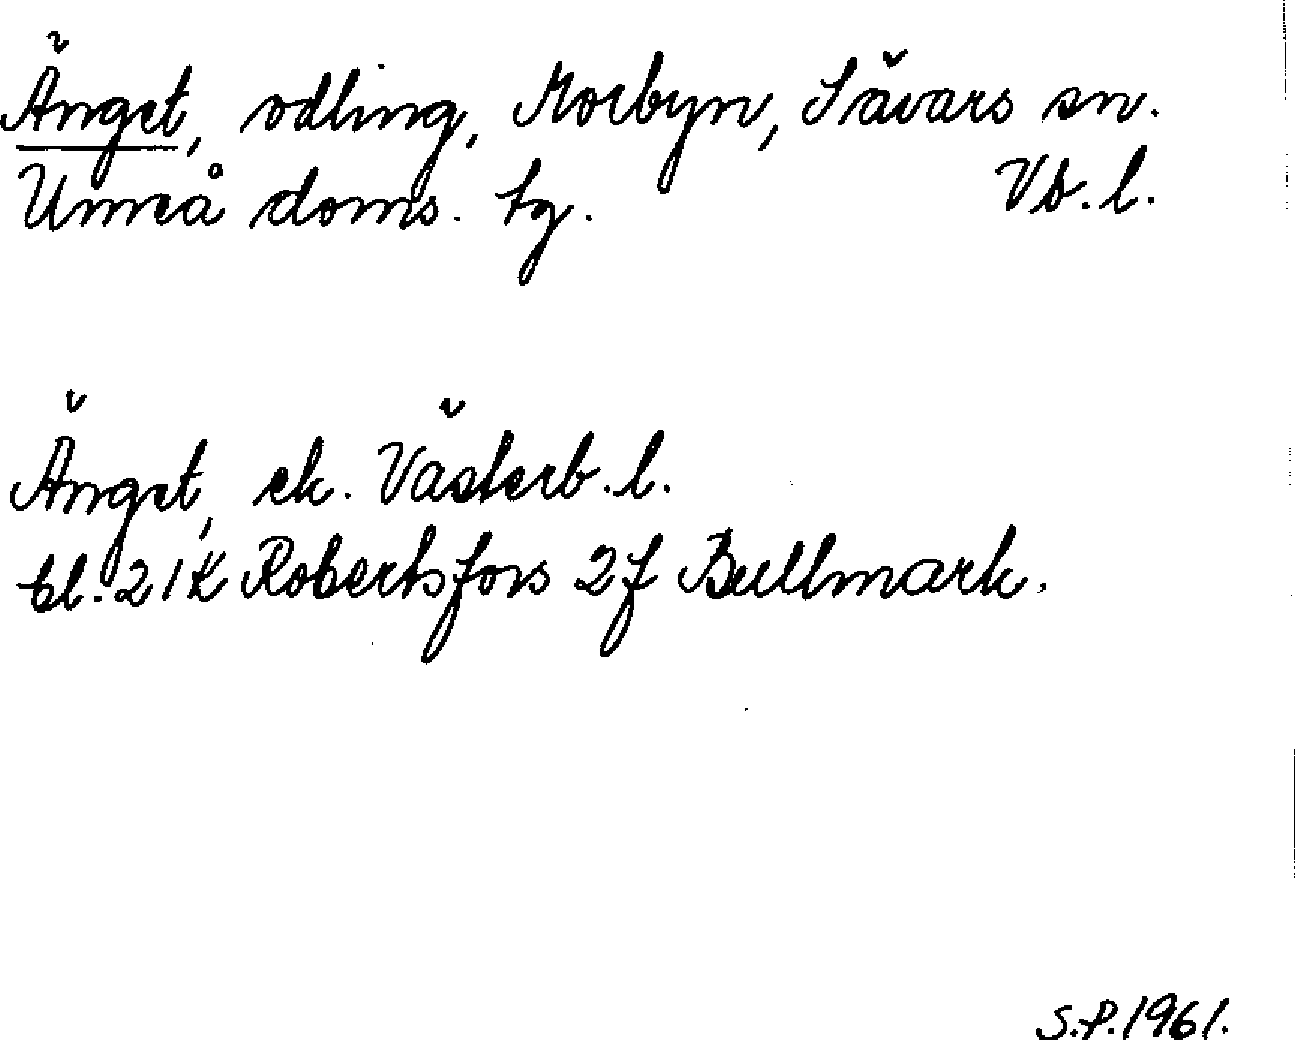 Änget, odling, Morbyn, Sävars sn.
Umeå doms. tg. Vb. l.
Änget, ek. Västerb. l.
bl. 21K Robertsfors 2f Bullmark.
S.P. 1961.